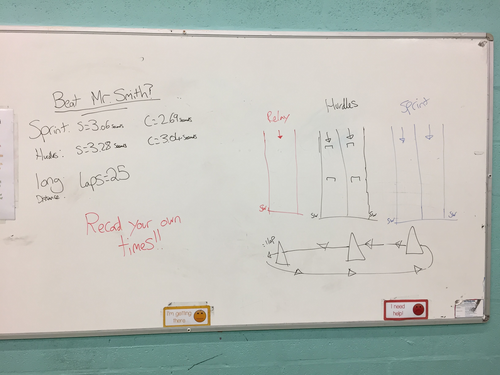 Beat Mr. Smith?
Sprint: S=3.06 seconds C=2.69 seconds
Hurdles: S=3.28 seconds C=3.04 seconds
long Distance: laps=25
Record your own
times!!
Relay Hurdles Sprint
SW SW SW SW
1 lap
I'm getting there
I need help!